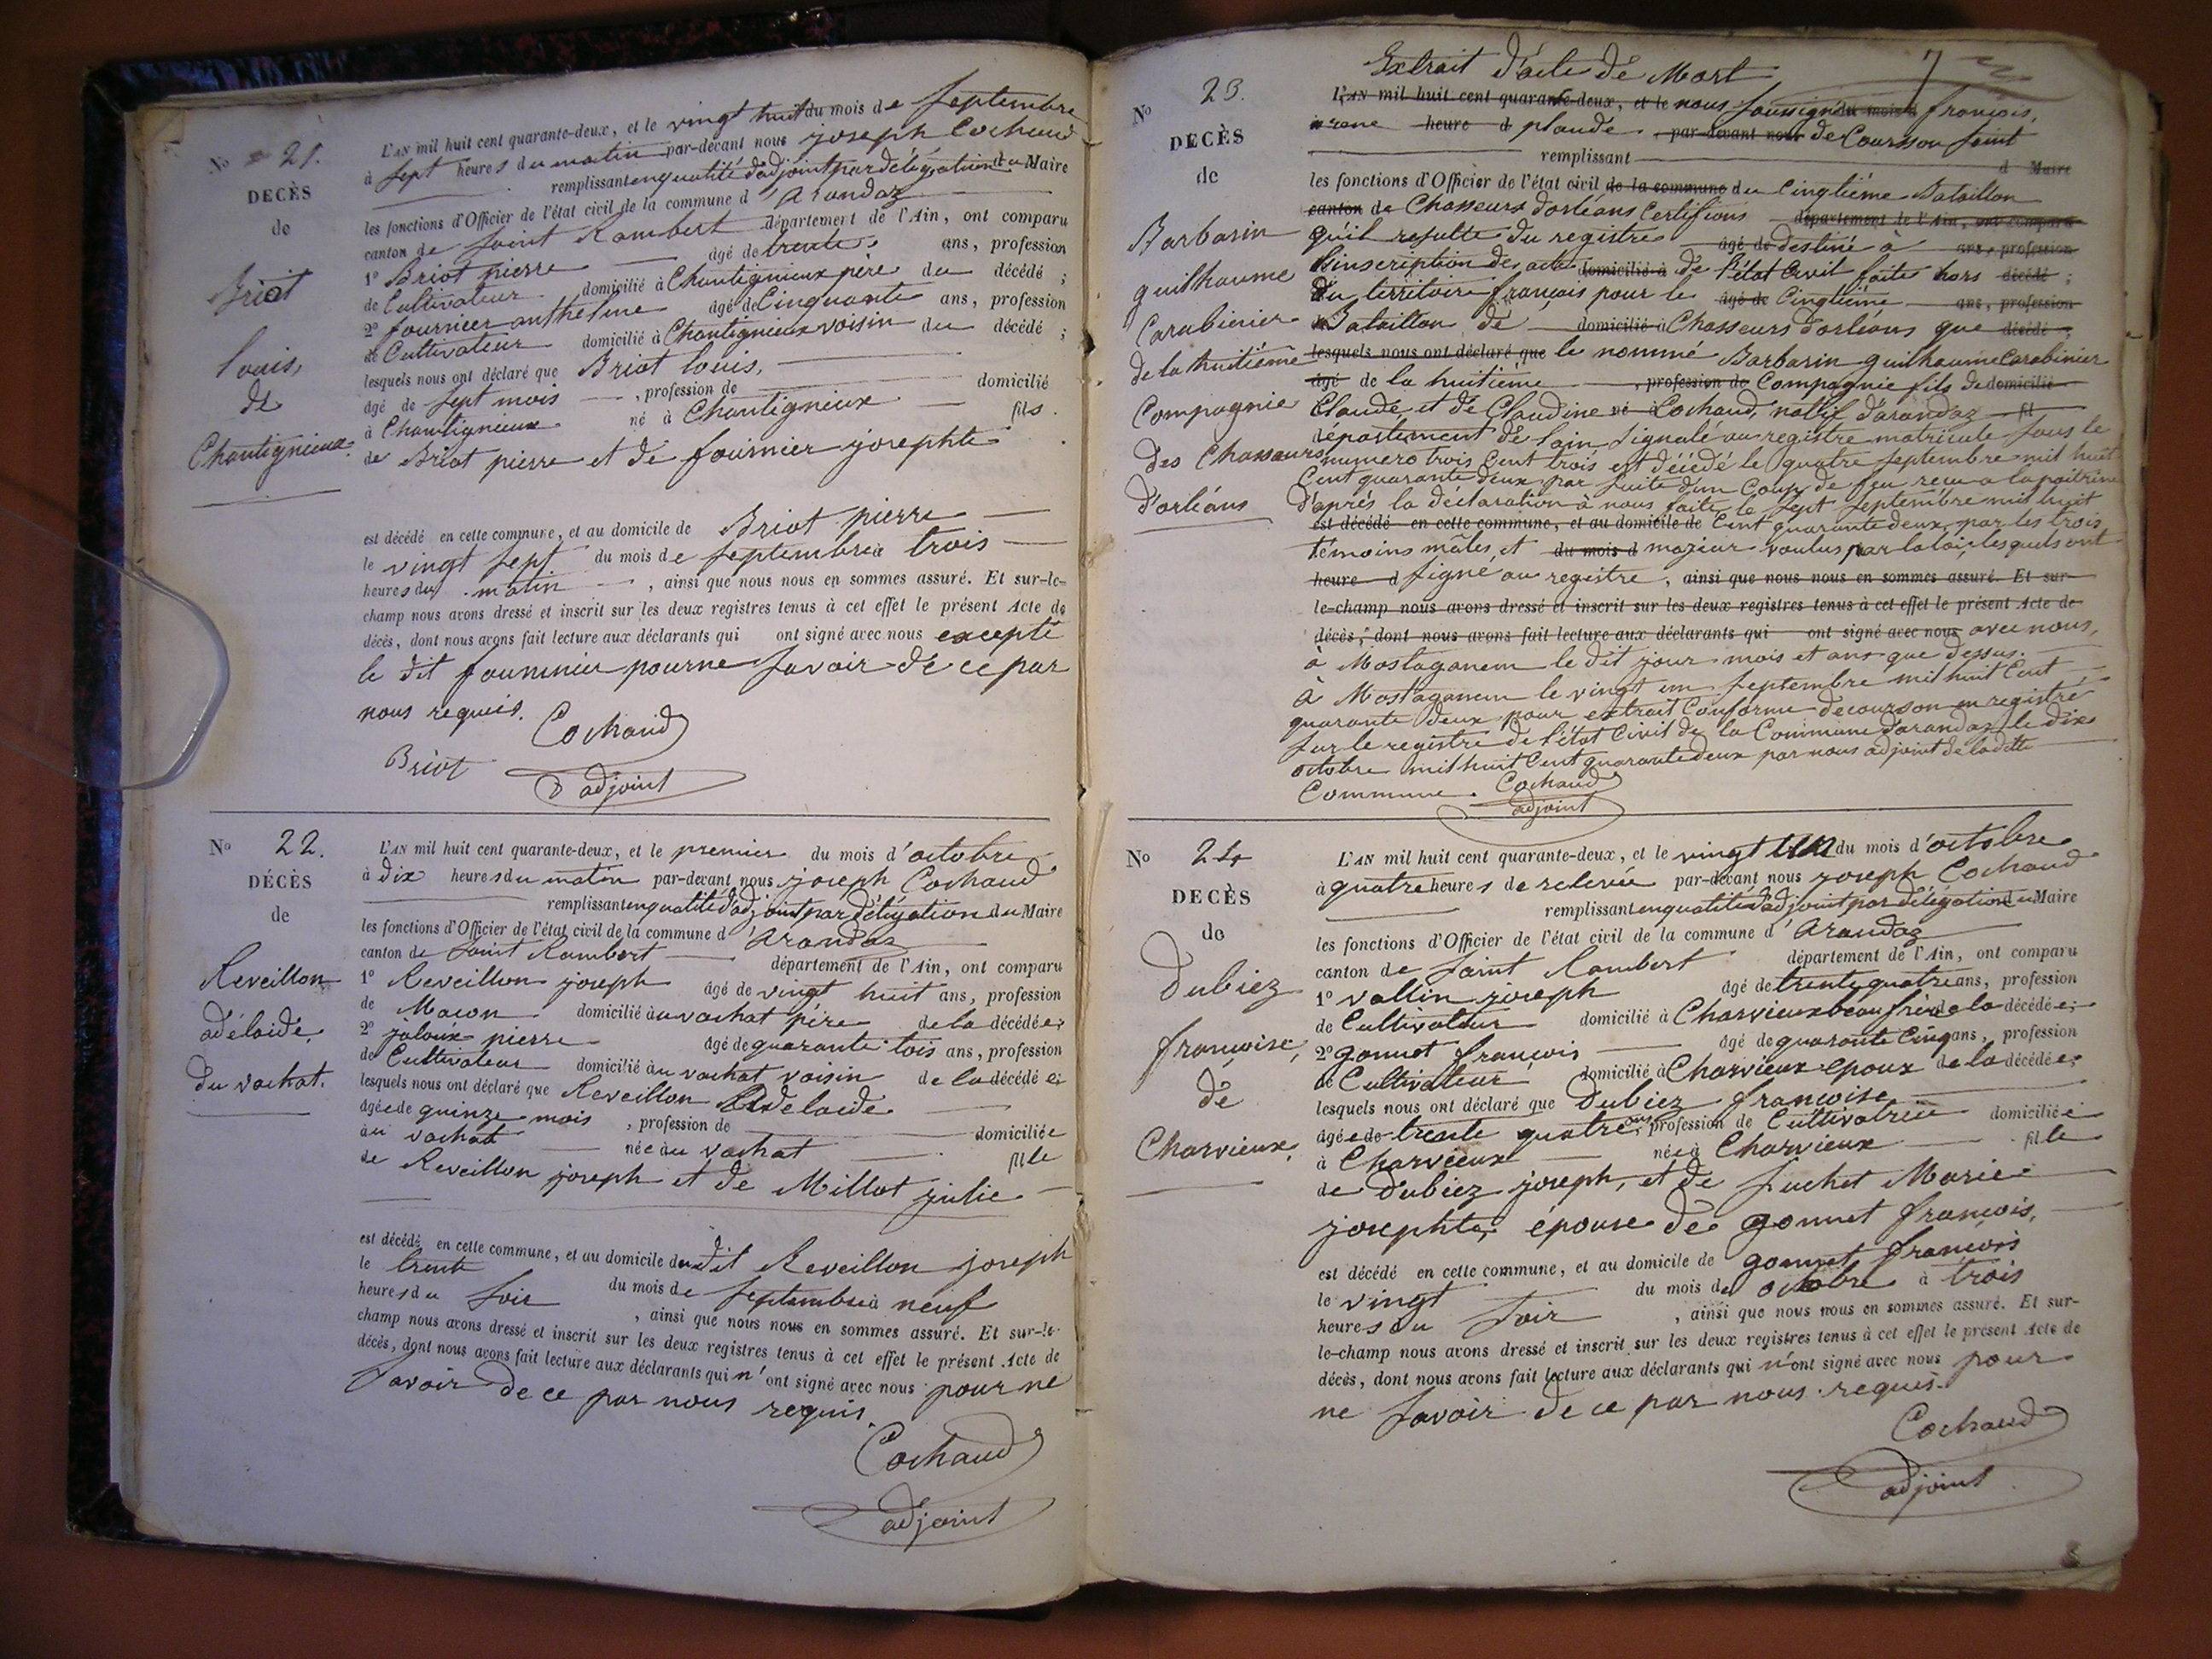 No 21.
DECÈS
de
Briot
louis,
de
Chantignieux.
L'AN mil huit cent quarante-deux, et le vingt huit du mois de septembre
à sept heures du matin par-devant nous joseph Cochaud
remplissant en qualité d'adjoint par délégation du Maire
les fonctions d'Officier de l'état civil de la commune d'Arandaz
canton de Saint Rambert département de l'Ain, ont comparu
1º Briot pierre âgé de trente ans, profession
de Cultivateur domicilié à Chantignieux père du décédé ;
2º fournier anthelme âgé de Cinquante ans, profession
de Cultivateur domicilié à Chantignieux voisin du décédé ;
lesquels nous ont déclaré que Briot louis,
âgé de sept mois , profession de domicilié
à Chantignieux né à Chantignieux fils
de Briot pierre et de fournier josephte
est décédé en cette commune, et au domicile de Briot pierre
le vingt sept du mois de septembre à trois
heures du matin , ainsi que nous nous en sommes assuré. Et sur-le-
champ nous avons dressé et inscrit sur les deux registres tenus à cet effet le présent Acte de
décès, dont nous avons fait lecture aux déclarants qui ont signé avec nous excepté
le dit fournier pour ne savoir de ce par
nous requis.
Cochaud
Briot
adjoint
No 22.
DÉCÈS
de
Reveillon
adélaide,
du vachat.
L'AN mil huit cent quarante-deux, et le premier du mois d'octobre
à dix heures du matin par-devant nous joseph Cochaud
remplissant en qualité d'adjoint par délégation du Maire
les fonctions d'Officier de l'état civil de la commune d'Arandaz
canton de Saint Rambert département de l'Ain, ont comparu
1º Reveillon joseph âgé de vingt huit ans, profession
de Macon domicilié au vachat père de la décédée ;
2º jaloux pierre âgé de quarante tois ans, profession
de Cultivateur domicilié au vachat voisin de la décédée ;
lesquels nous ont déclaré que Reveillon Adelaide
âgée de quinze mois , profession de domiciliée
au vachat née au vachat fille
de Reveillon joseph et de Millot julie
est décédé en cette commune, et au domicile du dit Reveillon joseph
le trente du mois de septembre à neuf
heures du soir , ainsi que nous nous en sommes assuré. Et sur-le-
champ nous avons dressé et inscrit sur les deux registres tenus à cet effet le présent Acte de
décès, dont nous avons fait lecture aux déclarants qui n'ont signé avec nous pour ne
savoir de ce par nous requis.
Cochaud
adjoint
7
No 23.
DECÈS
de
Barbarin
guilhaume
Carabinier
de la huitième
Compagnie
des Chasseurs
d'orléans
Extrait d'acte de Mort
L'AN mil huit cent quarante-deux, et le nous soussigné du mois d françois,
heure d plaude par-devant nous de Courson Saint
remplissant d Maire
les fonctions d'Officier de l'état civil de la commune du Cinqtième Bataillon
canton de Chasseurs d'orléans Certifions département de l'Ain, ont comparu
qu'il resulte du registre âgé de destiné à ans, profession
l'inscription des actes domicilié à de l'état Civil faite hors décédé ;
du territoire français pour le âgé de Cinqtième ans, profession
Bataillon de domicilié à Chasseurs d'orléans que décédé ;
lesquels nous ont déclaré que le nommé Barbarin guilhaume Carabinier
âgé de la huitième , profession de Compagnie fils de domicilié
Claude et de Claudine né à Cochaud, natif d'arandaz fil
département de lain signalé au registre matricule sous le
numero trois Cent trois est décédé le quatre septembre mil huit
Cent quarante deux par suite d'un Coup de feu reçu a la poitrine
d'après la déclaration à nous faite le sept septembre mil huit
est décédé en cette commune, et au domicile de Cent quarante deux, par les trois
témoins mâles, et du mois d majeur voulus par la loi, lesquels ont
heure d signé au registre, ainsi que nous nous en sommes assuré. Et sur-
le-champ nous avons dressé et inscrit sur les deux registres tenus à cet effet le présent Acte de
décès, dont nous avons fait lecture aux déclarants qui ont signé avec nous avec nous,
à Mostaganem le dit jour mois et ans que dessus.
à Mostaganem le vingt un septembre mil huit Cent
quarante deux pour extrait Conforme decourson enregistré
sur le registre de l'état Civil de la Commune d'arandaz le dix
octobre mil huit Cent quarante deux par nous adjoint de ladite
Commune. Cochaud
adjoint
No 24
DECÈS
de
Dubiez
françoise,
de
Charvieux,
L'AN mil huit cent quarante-deux, et le vingt un du mois d'octobre
à quatre heures de relevée par-devant nous joseph Cochaud
remplissant en qualité d'adjoint par délégation du Maire
les fonctions d'Officier de l'état civil de la commune d'Arandaz
canton de Saint Rambert département de l'Ain, ont comparu
1º vallin joseph âgé de trente quatre ans, profession
de Cultivateur domicilié à Charvieux beau frère de la décédée ;
2º gonnet françois âgé de quarante Cinq ans, profession
de Cultivateur domicilié à Charvieux epoux de la décédée ;
lesquels nous ont déclaré que Dubiez françoise
âgée de trente quatre ans, profession de Cultivatrice domiciliée
à Charvieux née à Charvieux fille
de Dubiez joseph, et de Suchet Marie
josephte, épouse de gonnet françois,
est décédé en cette commune, et au domicile de gonnet françois
le vingt du mois de octobre à trois
heures du soir , ainsi que nous nous en sommes assuré. Et sur-
le-champ nous avons dressé et inscrit sur les deux registres tenus à cet effet le présent Acte de
décès, dont nous avons fait lecture aux déclarants qui n'ont signé avec nous pour
ne savoir de ce par nous requis.
Cochaud
adjoint